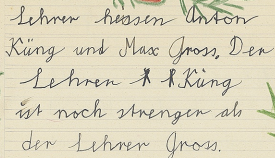 Lehrer hessen Anton
Küng und Max Gross. Der
Lehrer Küng
ist noch strenger als
der Lehrer Gross.